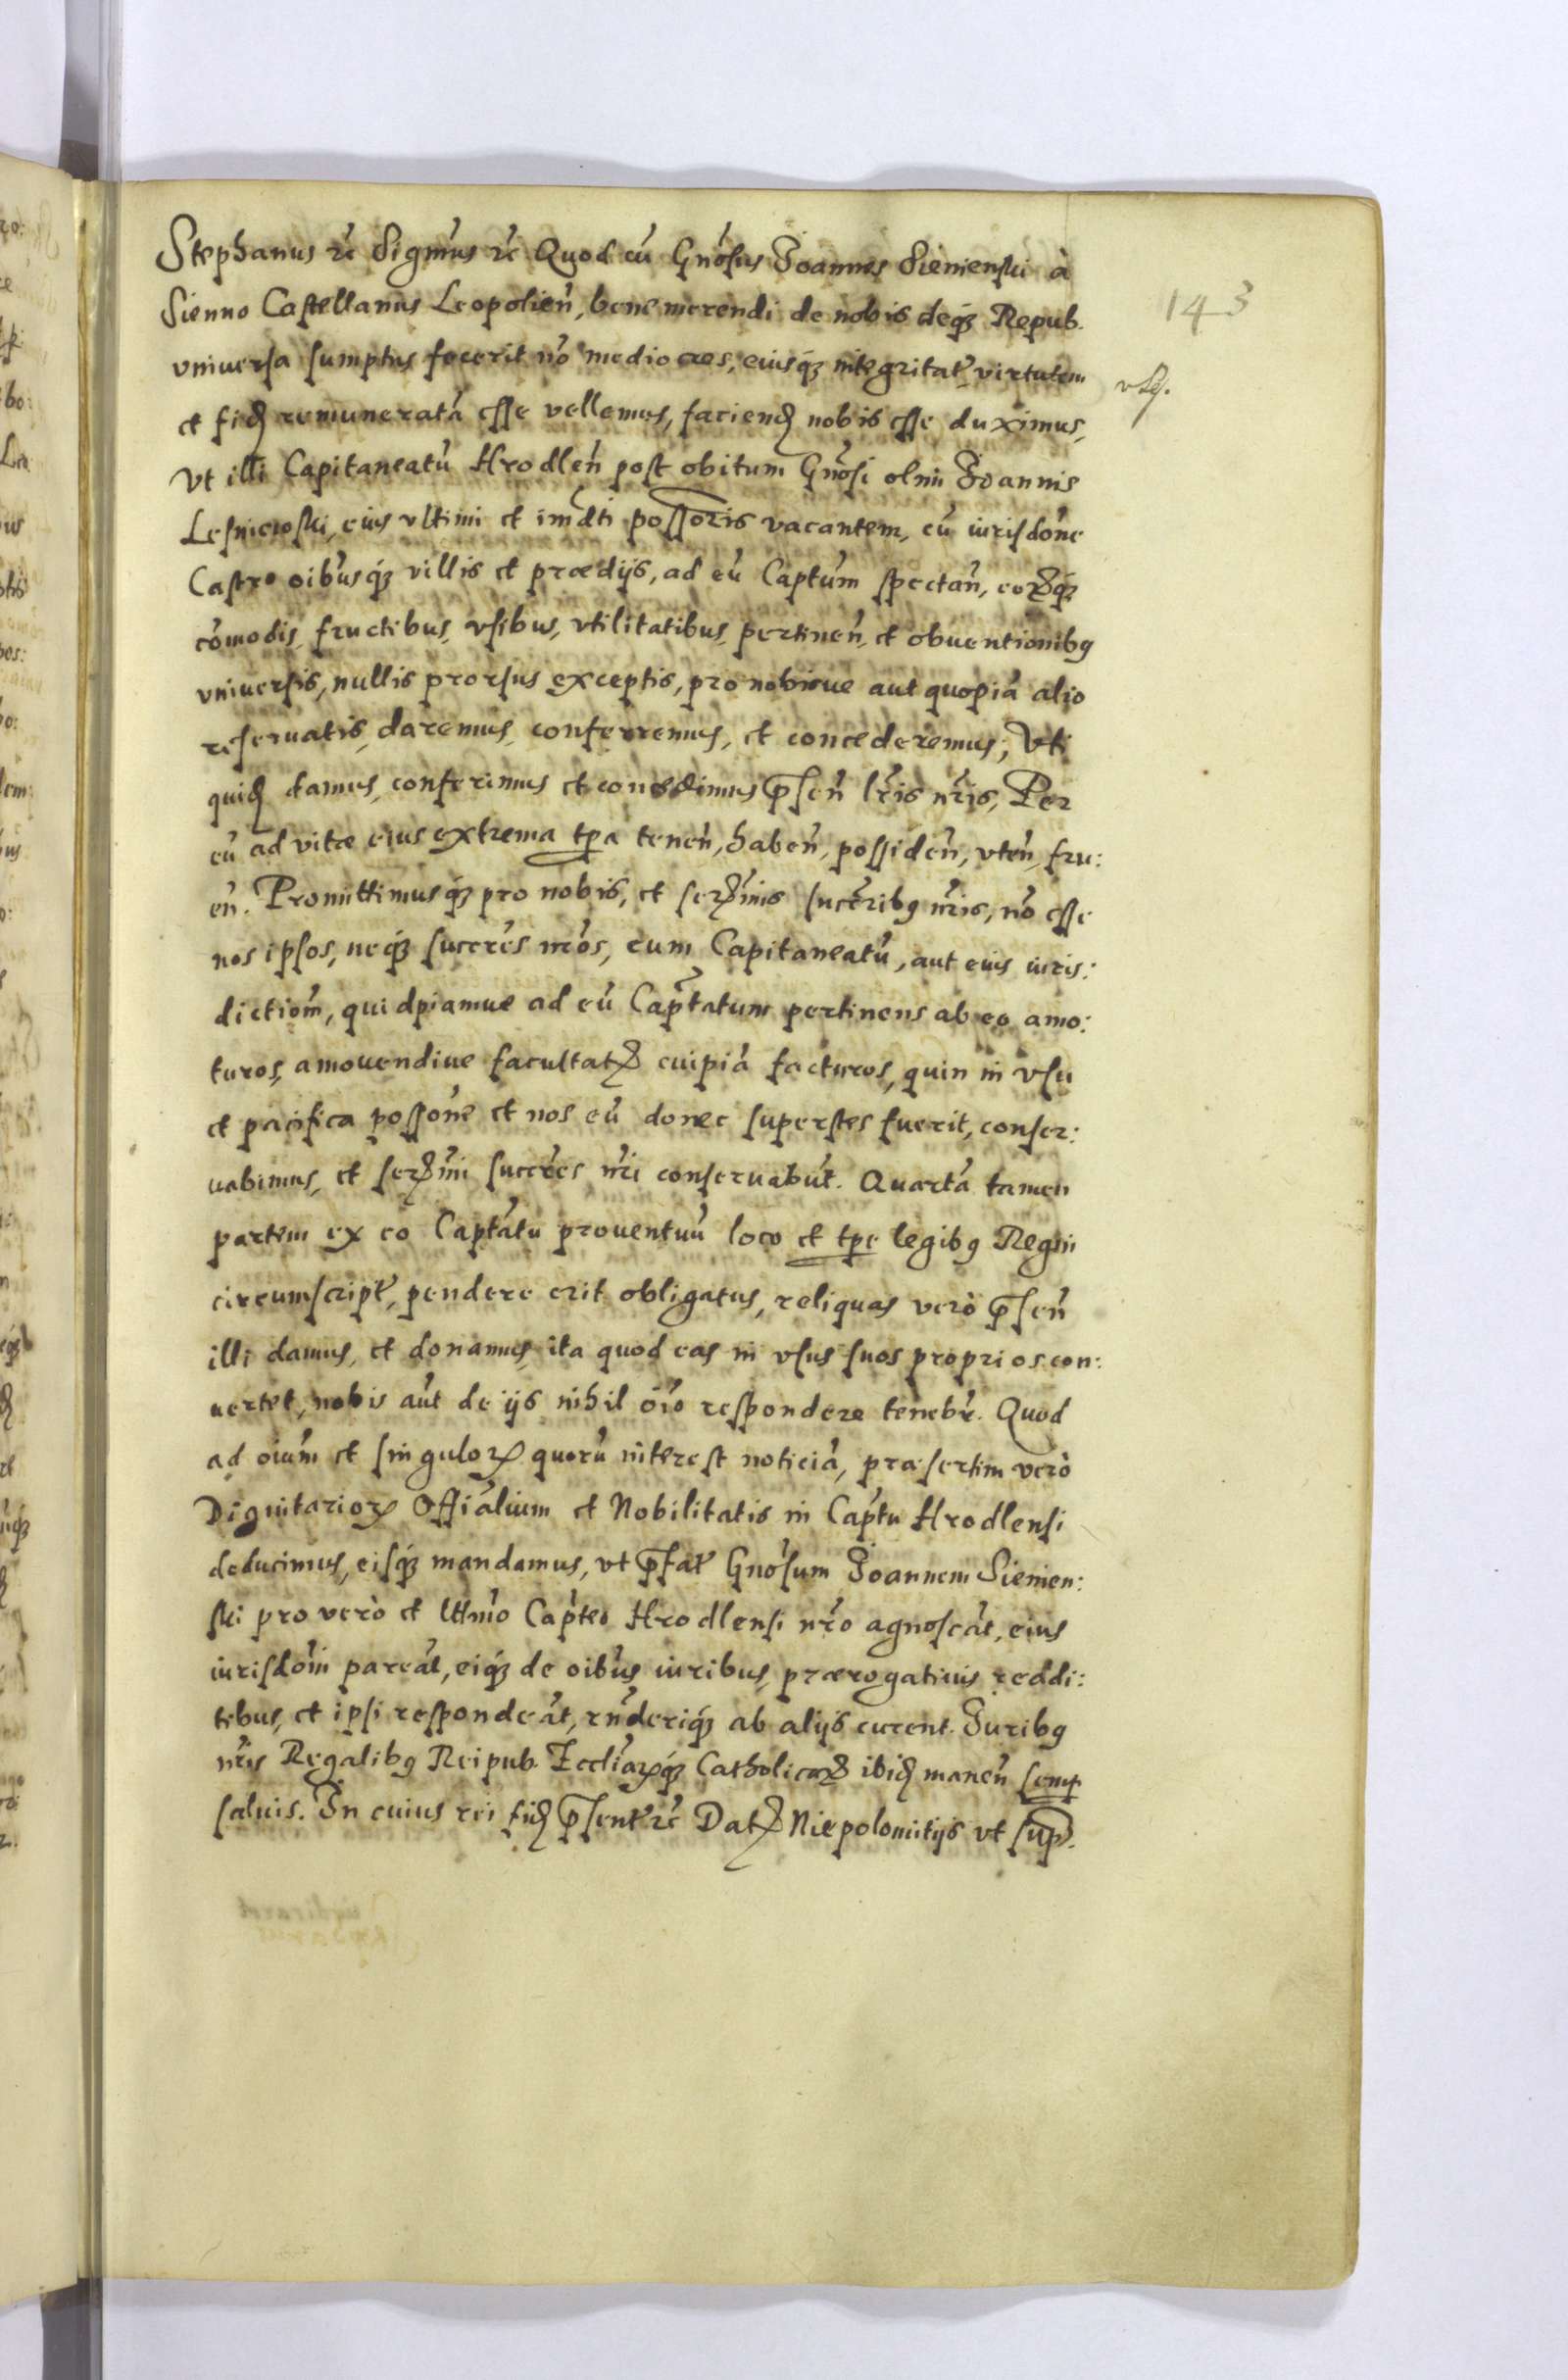 Stephanus ꝛc̄ Signm̄us ꝛc̄ Quod cū Gnōsus Joannes Sienienski à
Sienno Castellanus Leopolien̄, bene merendi de nobis deq́ꝫ Repub.
vniuersa sumptus fecerit nō mediocres, eiusq́ꝫ integritat̄, virtutem
et fidꝫ remuneratā esse vellemus, faciendꝫ nobis esse duximus,
Vt illi Capitaneatū Hrodlen̄ post obitum Gnōsi olim Joannis
Lesniewski, eius vltimi et im̄dti possoris vacantem, cū iurisdōne
Castro oībusq́ꝫ villis et prædijs, ad eū Captum̄ spectan̄, eoꝝq́ꝫ
cōmodis, fructibus, vsibus, vtilitatibus, pertinen̄, et obuentionibꝯ
vniuersis, nullis prorsus exceptis, pro nobisue aut quopiā alio
reseruatis, daremus, conferremus, et concederemus; Vti
quidꝫ damus, conferimus et concedimus p̄sen̄ lr̄is nr̄is, Per
eū ad vitæ eius extrema tp̄a tenen̄, haben̄, possiden̄, vten̄, fru:
en̄. Promittimusq́ꝫ pro nobis, et serꝫm̄is succr̄ibꝯ nr̄is, nō esse
nos ipsos, neq́ꝫ succrēs nrōs, eum Capitaneatū, aut eius iuris:
dictiom̄, quidpiamue ad eū Cap̄tatum pertinens ab eo amo:
turos, amouendiue facultatꝫ cuipiā facturos, quin in vsu
et pacifica possōne et nos eū donec superstes fuerit, conser:
uabimus, et serꝫm̄i succrēs nr̄i conseruabūt. Quartā tamen
partem ex eo Captātu prouentuū loco et tp̄e legibꝯ Regni
circumscript̄, pendere erit obligatus, reliquas verò p̄sen̄
illi damus, et donamus, ita quod eas in vsus suos proprios con:
uertet, nobis aūt de ijs nihil oīo respondere tenebr̄. Quod
ad oīum et singuloꝝ quorū interest noticiā, præsertim verò
Dignitarioꝝ Offiālium et Nobilitatis in Cap̄tu Hrodlensi
deducimus, eisq́ꝫ mandamus, vt p̄fat̄ Gnōsum Joannem Sienien:
ski pro verò et lt̄imo Cap̄teo Hrodlensi nrō agnoscāt, eius
iurisdōni pareāt, eiq́ꝫ de oībus iuribus, prærogatiuis, reddi:
tibus, et ipsi respondeāt, rn̄deriq́ꝫ ab alijs curent. Juribꝯ
nr̄is Regalibꝯ Reipub. Eccliāꝝq́ꝫ Catholicaꝝ ibidꝫ manen̄ semp̱
saluis. In cuius rei fidꝫ p̄sent̄ ꝛc̄ Datꝫ Niepolomitijs vt sup̄.
143